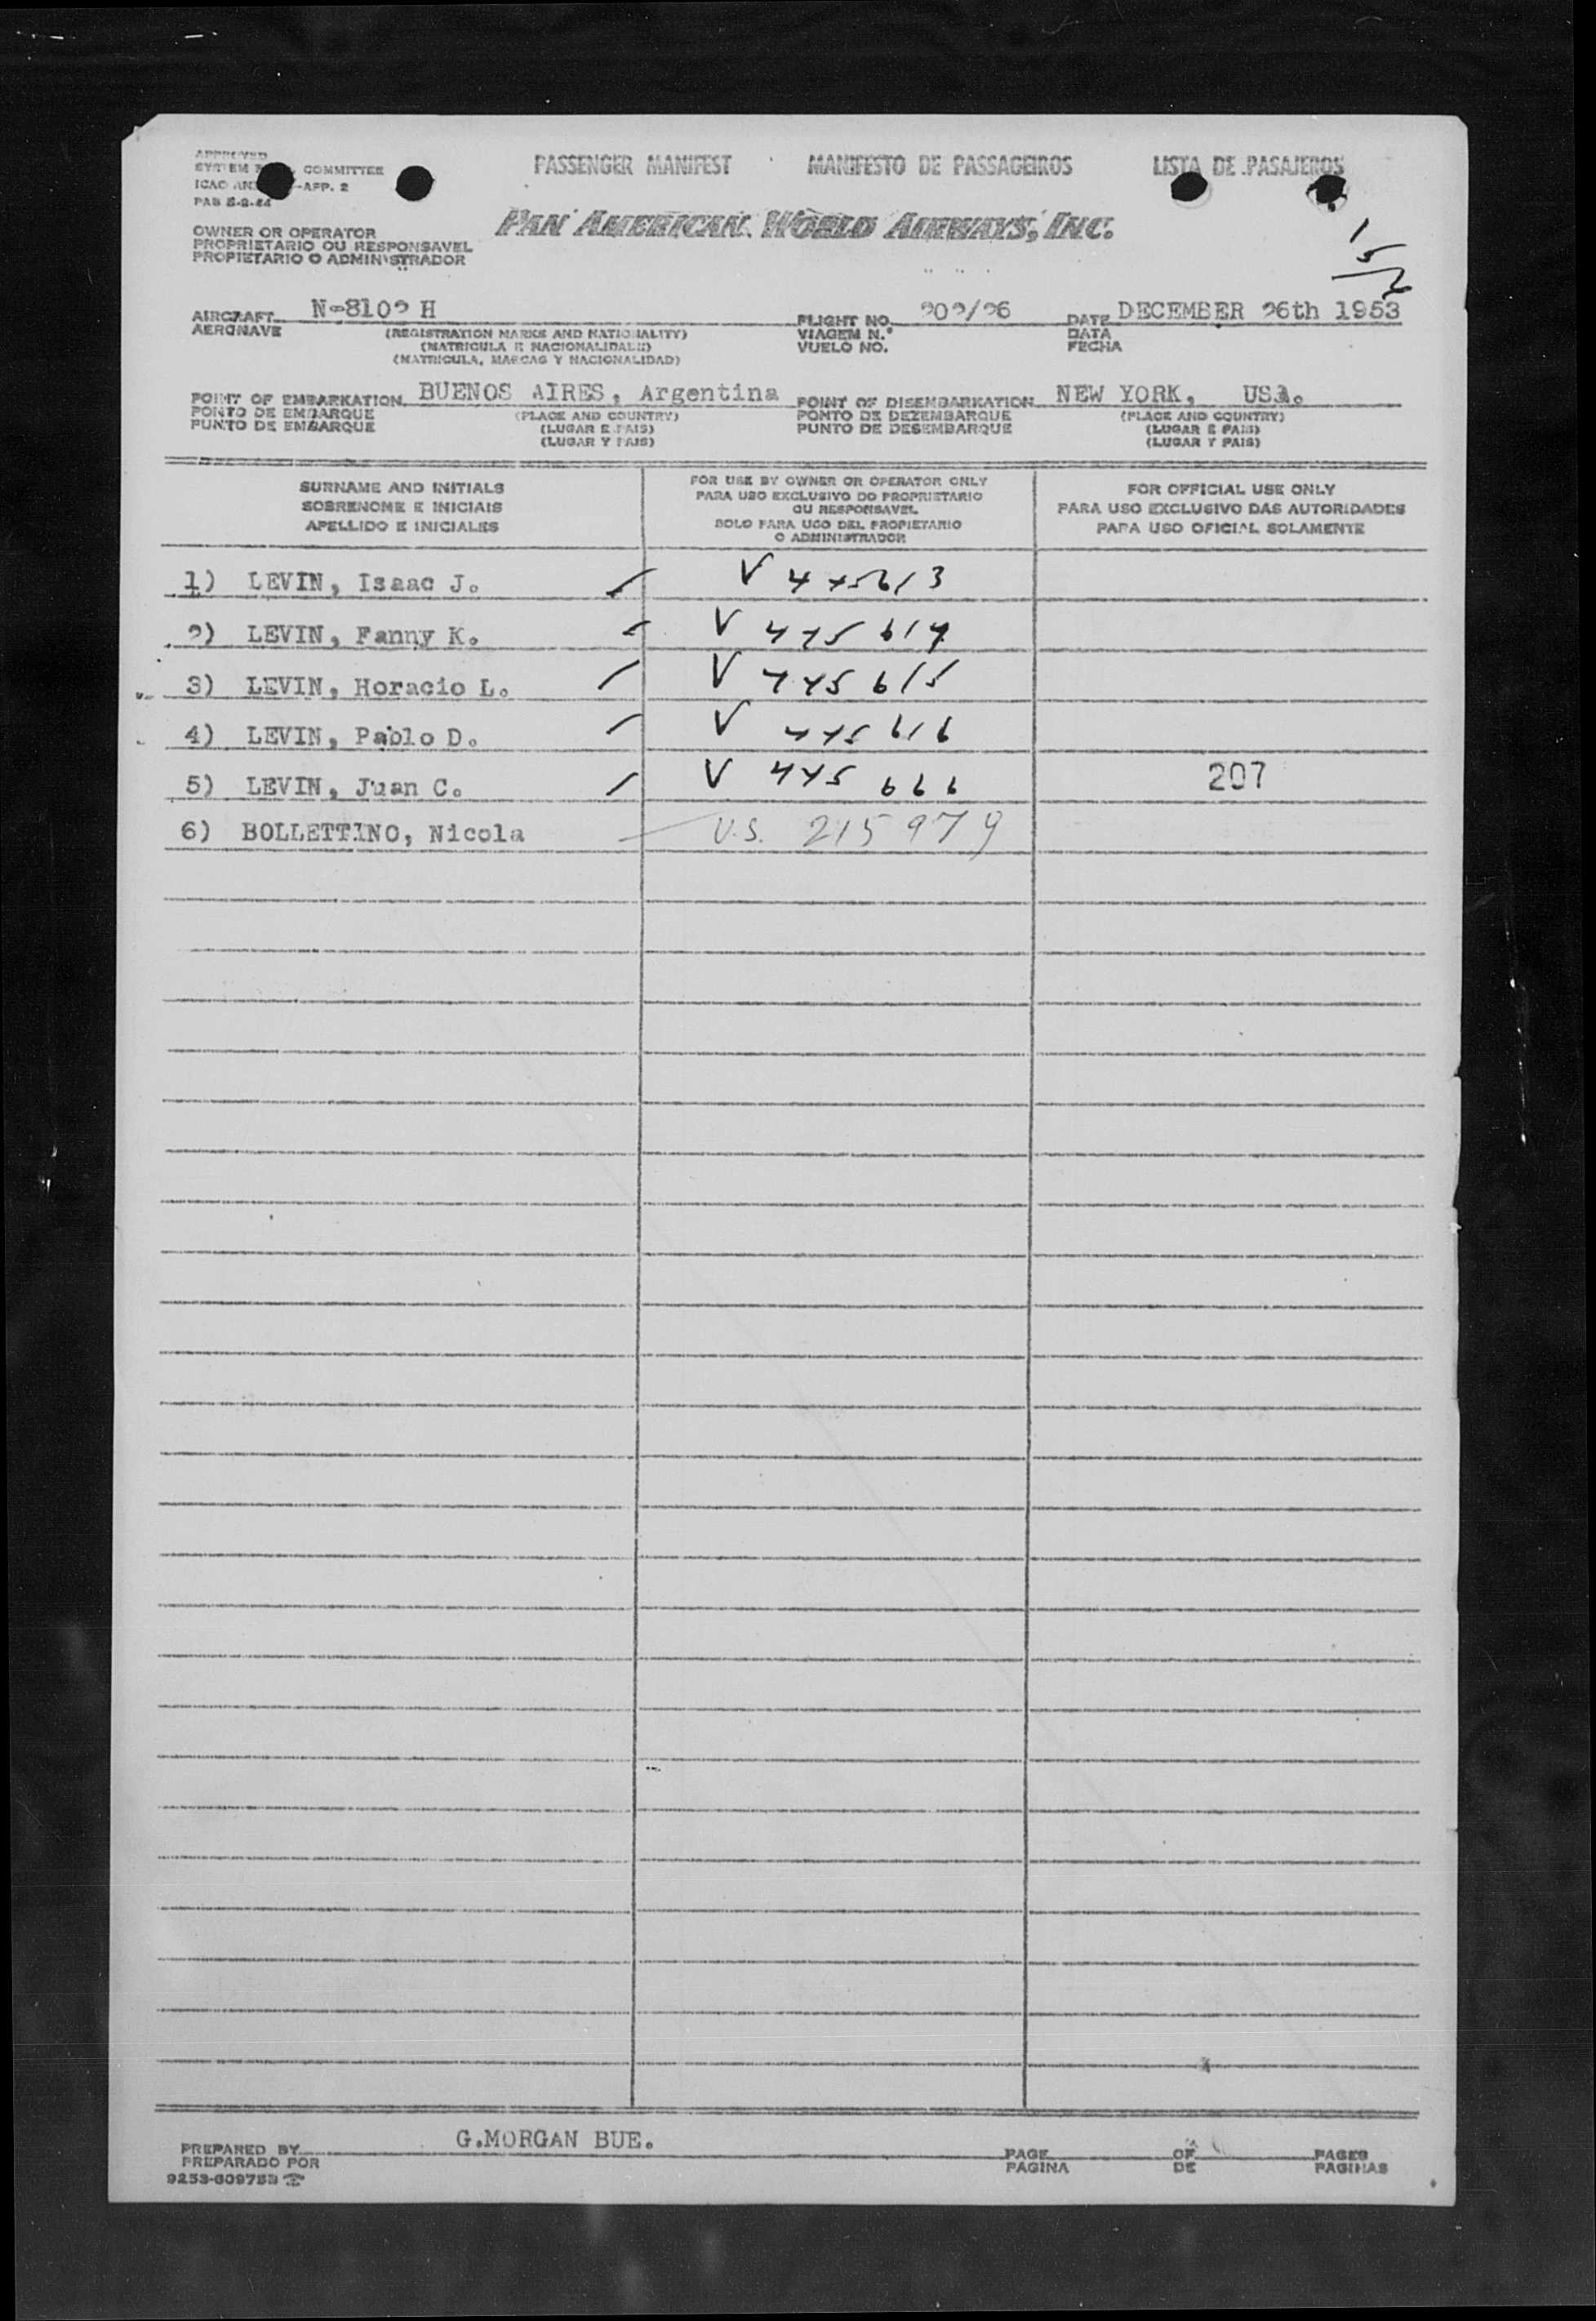 APPROVED
SYSTEM COMMITTEE
ICAO AN -APP. 2
PAB
PASSENGER MANIFEST MANIFESTO DE PASSAGEIROS LISTA DE PASAJEROS
PAN AMERICAN WORLD AIRWAYS, INC.
OWNER OR OPERATOR
PROPRIETARIO OU RESPONSAVEL
PROPIETARIO O ADMINISTRADOR
AIRCRAFT N-8102 H FLIGHT NO. 202/26 DATE DECEMBER 26th 1953
AERONAVE (REGISTRATION MARKS AND NATIONALITY) VIAGEM N.° DATA
(MATRICULA E NACIONALIDADE) VUELO NO. FECHA
(MATRICULA, MARCAS Y NACIONALIDAD)
POINT OF EMBARKATION BUENOS AIRES, Argentina POINT OF DISEMBARKATION NEW YORK, USA.
PONTO DE EMBARQUE (PLACE AND COUNTRY) PONTO DE DEZEMBARQUE (PLACE AND COUNTRY)
PUNTO DE EMBARQUE (LUGAR E PAIS) PUNTO DE DESEMBARQUE (LUGAR E PAIS)
(LUGAR Y PAIS) (LUGAR Y PAIS)
SURNAME AND INITIALS
SOBRENOME E INICIAIS
APELLIDO E INICIALES
FOR USE BY OWNER OR OPERATOR ONLY
PARA USO EXCLUSIVO DO PROPRIETARIO
OU RESPONSAVEL
SOLO PARA USO DEL PROPIETARIO
O ADMINISTRADOR
FOR OFFICIAL USE ONLY
PARA USO EXCLUSIVO DAS AUTORIDADES
PARA USO OFICIAL SOLAMENTE
1) LEVIN, Isaac J. V 475613
2) LEVIN, Fanny K. V 475614
3) LEVIN, Horacio L. V 475615
4) LEVIN, Pablo D. V 475616
5) LEVIN, Juan C. V 475 666 207
6) BOLLETTINO, Nicola U.S. 215979
PREPARED BY G.MORGAN BUE. PAGE OF PAGES
PREPARADO POR PAGINA DE PAGINAS